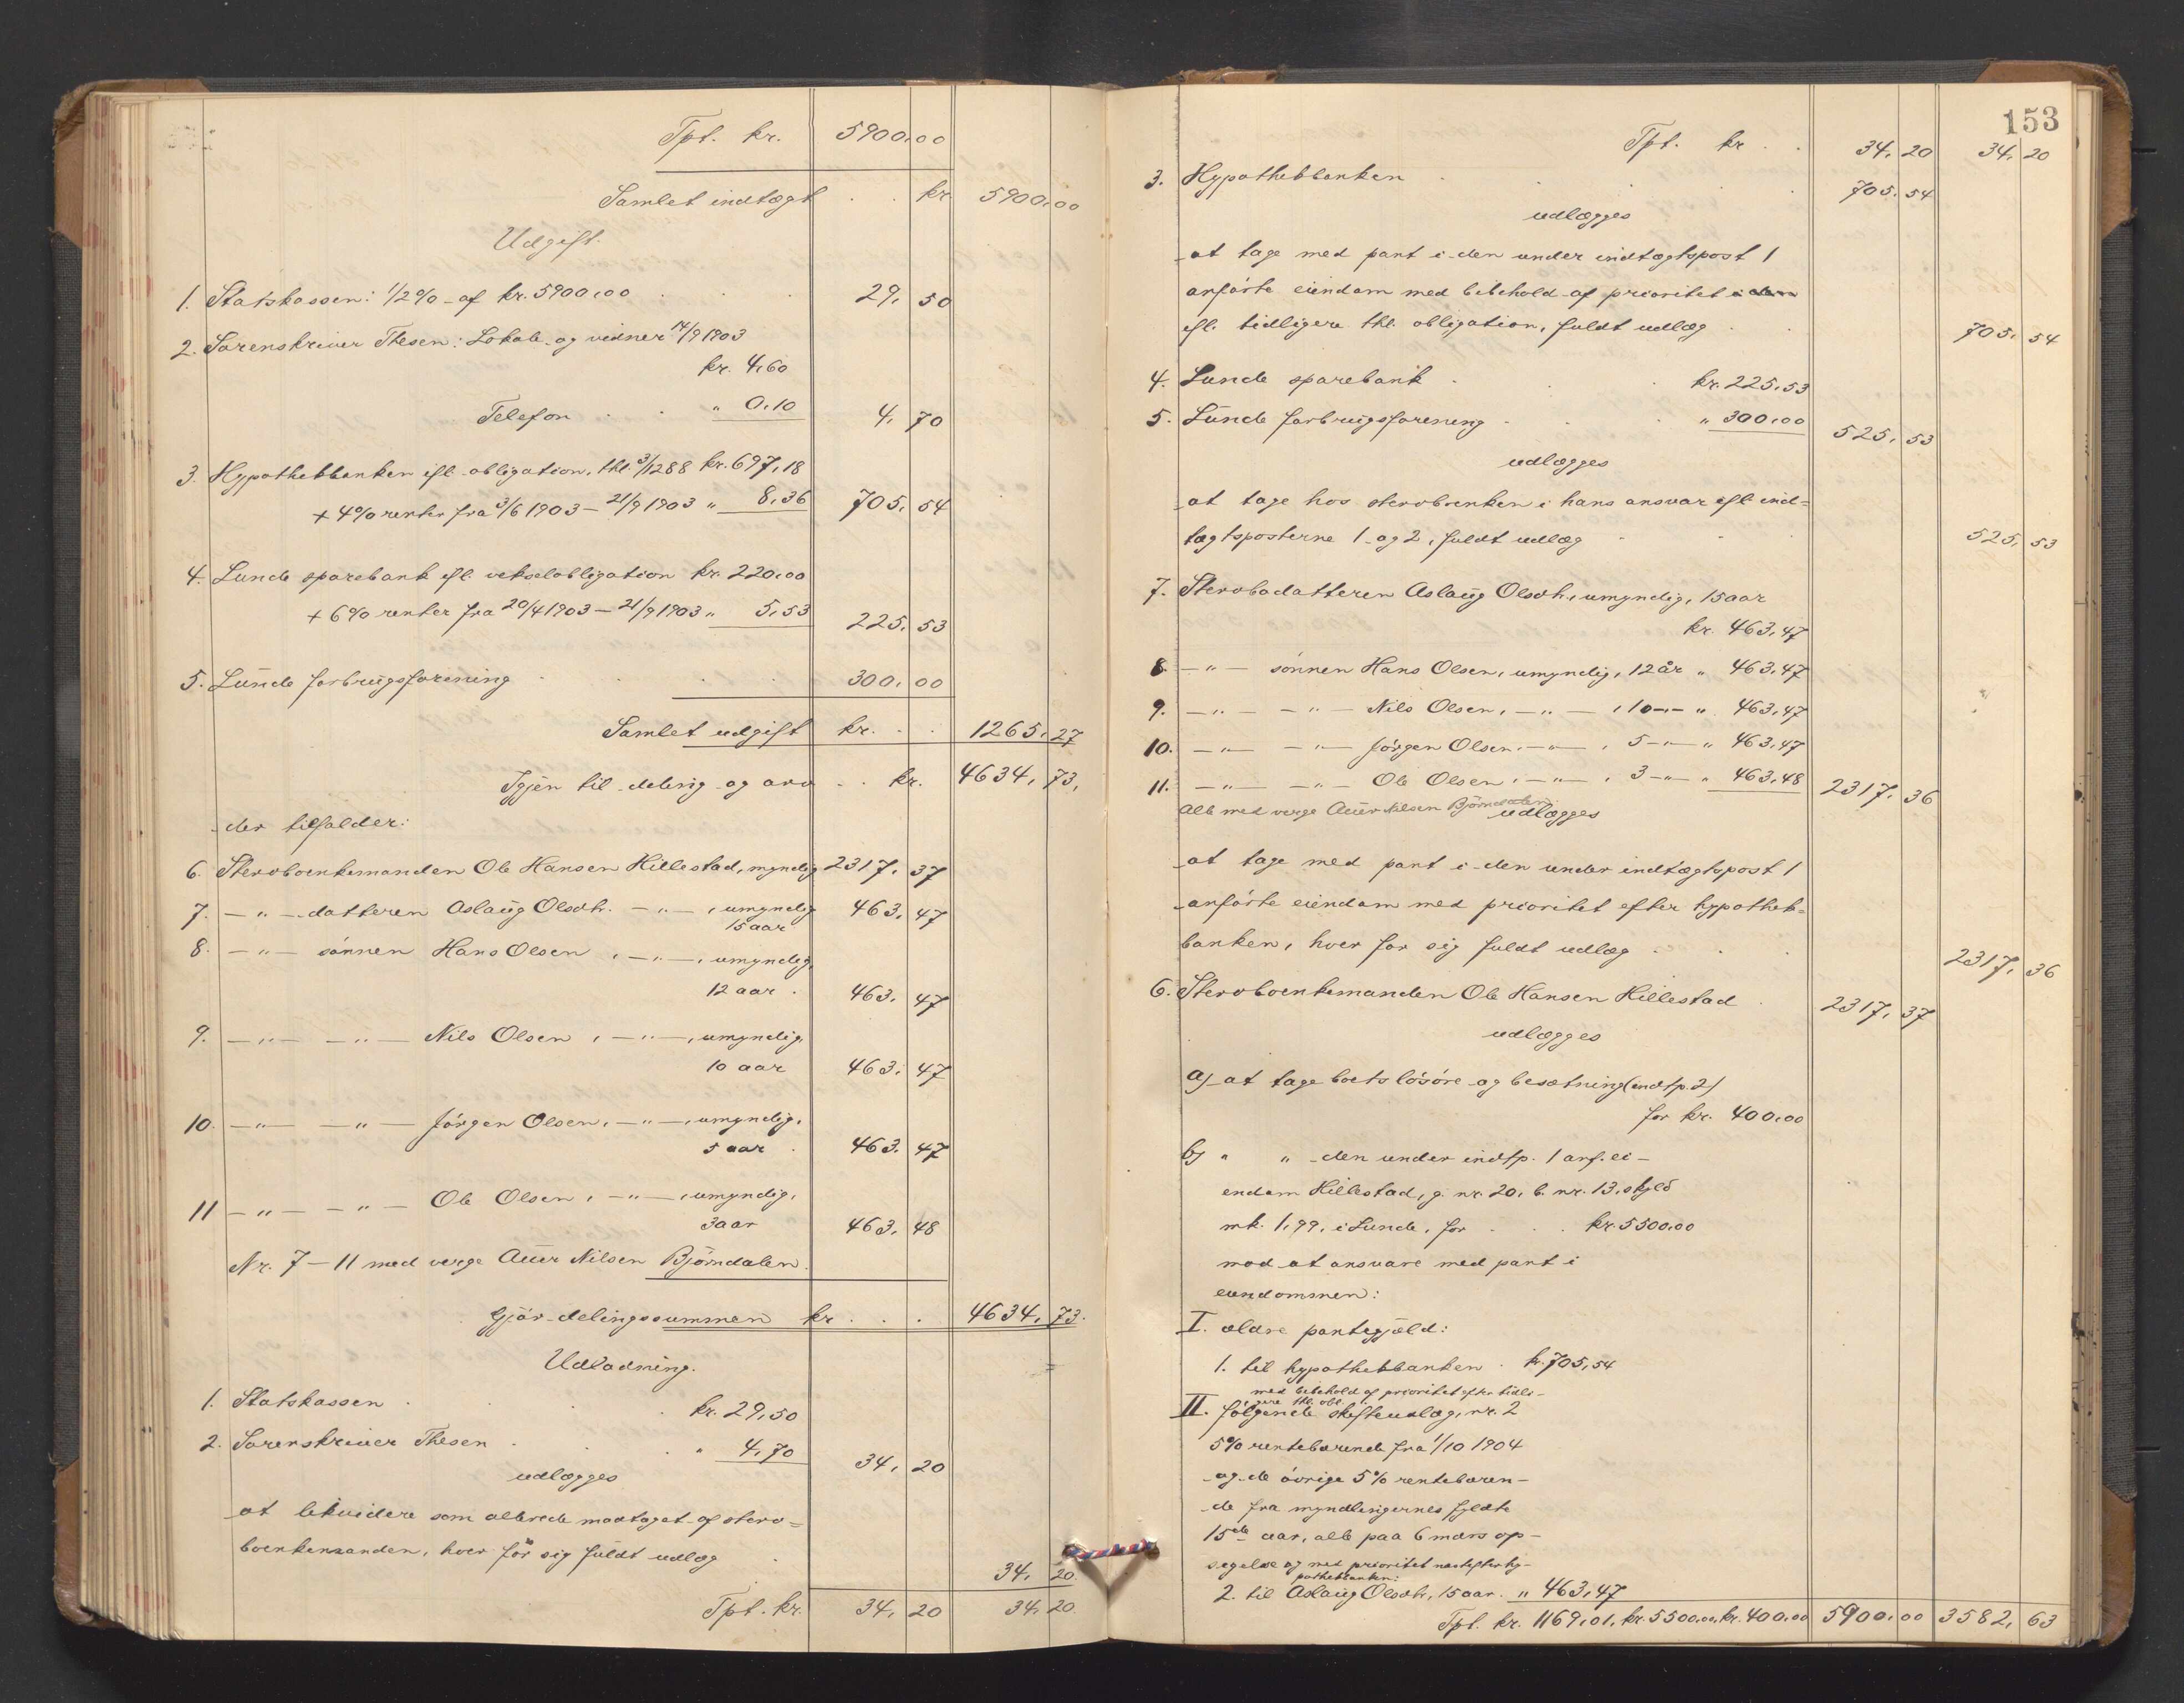 Tpt. kr. 5900,00
Samlet indtægt . . kr. 5900,00
Udgift.
1. Statskassen: 1/2 % af kr. 5900,00 . . . 29, 50
2. Sorenskriver Thesen: Lokale og vidner 14/9 1903
kr. 4,60
Telefon . . " 0,10 4, 70
3. Hypothekbanken efl. obligation, thl. 3/12 88 kr. 697,18
+ 4% renter fra 3/6 1903 – 21/9 1903 " 8,36 705, 54
4. Lunde sparebank efl. vekselobligation kr. 220,00
+ 6% renter fra 20/4 1903 – 21/9 1903 " 5,53 225, 53
5. Lunde forbrugsforening . . . 300, 00
Samlet udgift kr. . . 1265, 27
Igjen til deling og arv . . kr. 4634, 73,
der tilfalder:
6. Stervboenkemanden Ole Hansen Hillestad, myndig 2317, 37
7. – " – datteren Aslaug Olsdtr. – " –, umyndig 463, 47
15 aar
8. – " – sønnen Hans Olsen, – " –, umyndig,
12 aar . 463, 47
9. – " – – " – Nils Olsen, – " –, umyndig,
10 aar 463, 47
10. – " – – " – Jörgen Olsen, – " –, umyndig,
5 aar . 463, 47
11 – " – – " – Ole Olsen, – " –, umyndig,
3 aar 463, 48
Nr. 7 – 11 med verge Auver Nilsen Björndalen.
Gjör delingssummen kr . . . 4634, 73.
Udlodning.
1. Statskassen . . . kr. 29,50
2. Sorenskriver Thesen . . . " 4,70 34, 20
udlægges
at likvidere som allerede modtaget af sterv=
boenkemanden, hver for sig fuldt udlæg . 34, 20.
Tpt. kr. 34, 20 34, 20.
153
Tpt. kr . . 34, 20 34, 20
3. Hypothekbanken . . . 705, 54
udlægges
at tage med pant i den under indtægtspost 1
anførte eiendom med bibehold af prioritet
efl. tidligere thl. obligation, fuldt udlæg . . 705, 54
4. Lunde sparebank . . kr. 225,53
5. Lunde forbrugsforening . . . " 300,00 525, 53
udlægges
at tage hos stervboenken i hans ansvar efl. ind=
tægtsposterne 1 og 2, fuldt udlæg . . . 525, 53
7. Stervbodatteren Aslaug Olsdtr., umyndig, 15 aar
kr. 463,47
8. – " – sønnen Hans Olsen, umyndig, 12 år " 463,47
9. – " – – " – Nils Olsen, – " –, 10 – " – " 463,47
10. – " – – " – Jörgen Olsen, – " –, 5 – " – " 463,47
11. – " – – " – Ole Olsen, – " –, 3 – " – " 463,48 2317, 36
alle med verge Auver Nilsen Björndalen
udlægges
at tage med pant i den under indtægtspost 1
anførte eiendom med prioritet efter hypothek=
banken, hver for sig fuldt udlæg . . . 2317, 36
6. Stervboenkemanden Ole Hansen Hillestad . 2317, 37
udlægges
a) at tage boets lösöre og besætning (indtp. 2)
for kr. 400,00
b) " " den under indtp. 1 anf. ei–
endom Hillestad, g. nr. 20, b. nr. 13, skyld
mk. 1,99, i Lunde, for . . . kr. 5500,00
mod at ansvare med pant i
eiendommen:
I. ældre pantegjæld:
1. til hypothekbanken . kr. 705,54
med bibehold af prioritet efter tidli–
gere thl. obl.
II. følgende skifteudlæg, nr. 2
5% rentebærende fra 1/10 1904
og de øvrige 5% rentebæren–
de fra myndlingernes fyldte
15de aar, alle paa 6 mdrs op–
sigelse og med prioritet næstefter hy–
pothekbanken:
2. til Aslaug Olsdtr., 15 aar . " 463,47
Tpt. kr. 1169,01, kr. 5500,00, kr. 400,00 5900,00 3582, 63